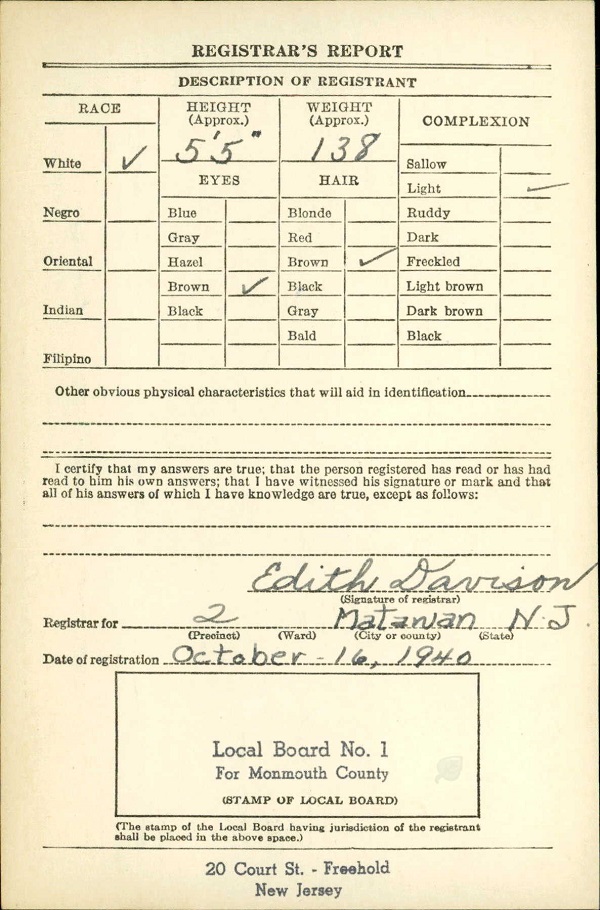 REGISTRAR'S REPORT
DESCRIPTION OF REGISTRANT
RACE
HEIGHT
(Approx.)
WEIGHT
(Approx.)
COMPLEXION
5'5"
138
White ✓
Sallow
EYES
HAIR
Light ✓
Negro
Blue
Blonde
Ruddy
Gray
Red
Dark
Oriental
Hazel
Brown ✓
Freckled
Brown ✓
Black
Light brown
Indian
Black
Gray
Dark brown
Bald
Black
Filipino
Other obvious physical characteristics that will aid in identification
I certify that my answers are true; that the person registered has read or has had
read to him his own answers; that I have witnessed his signature or mark and that
all of his answers of which I have knowledge are true, except as follows:
Edith Davison
(Signature of registrar)
Registrar for 2 Matawan N.J.
(Precinct) (Ward) (City or county) (State)
Date of registration October - 16, 1940
Local Board No. 1
For Monmouth County
(STAMP OF LOCAL BOARD)
(The stamp of the Local Board having jurisdiction of the registrant
shall be placed in the above space.)
20 Court St. - Freehold
New Jersey